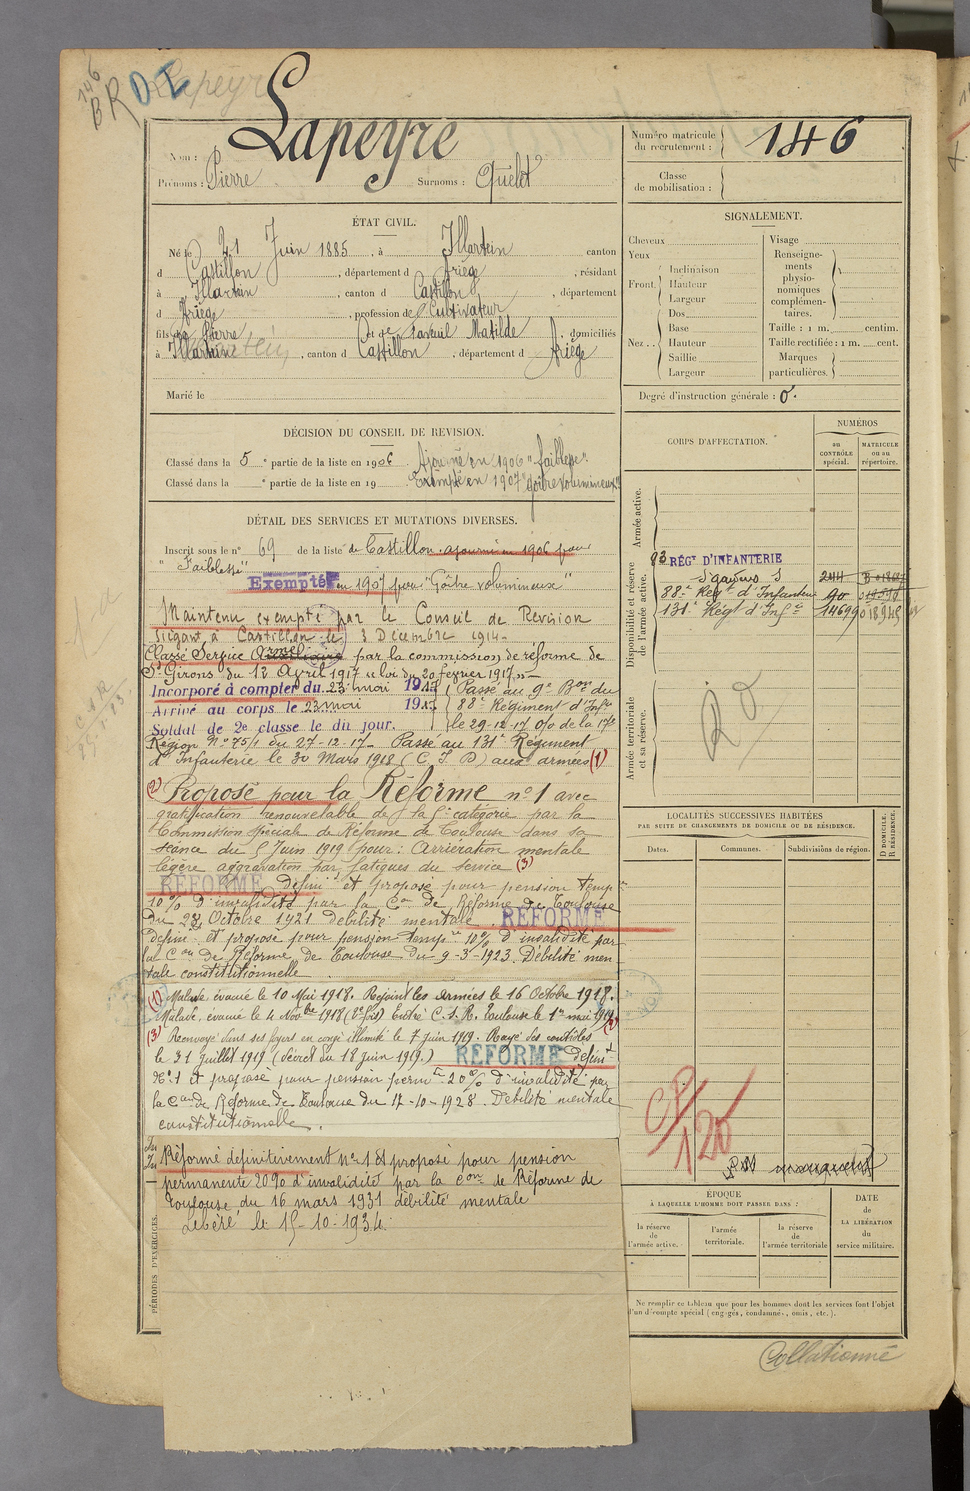 146
BR DI
Lapeyre
Nom : Lapeyre
Prénoms : Pierre Surnoms : Quelet
Numéro matricule du recrutement : 146
Classe de mobilisation :
ÉTAT CIVIL.
Né le 21 Juin 1885, à Illartein canton
d Castillon, département d Ariège, résidant
à Illartein, canton d Castillon, département
d Ariège, profession de Cultivateur
fils de Pierre et de Matilde, domiciliés
à Illartein, canton d Castillon, département d Ariège
Marié le
SIGNALEMENT.
Cheveux
Yeux
Front. Inclinaison
Hauteur
Largeur
Nez. Dos
Base
Hauteur
Saillie
Largeur
Visage
Renseignements physionomiques complémentaires.
Taille : 1 m. centim.
Taille rectifiée : 1 m. cent.
Marques particulières.
Degré d'instruction générale : 0.
DÉCISION DU CONSEIL DE REVISION.
Classé dans la 5e partie de la liste en 1906 Ajourné en 1906 "faiblesse".
Classé dans la e partie de la liste en 19 Exempté en 1907 "goître volumineux"
DÉTAIL DES SERVICES ET MUTATIONS DIVERSES.
Inscrit sous le n° 69 de la liste de Castillon. ajourné en 1906 pour
"Faiblesse"
Exempté en 1907 pour "Goître volumineux"
Maintenu exempté par le Conseil de Revision
siégant à Castillon le 3 Décembre 1914-
Classé Service Armé par la commission de réforme de
St Girons du 12 Avril 1917 loi du 20 février 1917
Incorporé à compter du 23 mai 1917 Passé au 9e Bon du
Arrivé au corps le 23 mai 1917 88e Régiment d'Infie
Soldat de 2e classe le dit jour. le 29-12-17 o/o de la 17e
Région No 75/1 du 27-12-17- Passé au 131e Régiment
d'Infanterie le 30 Mars 1918 (C. I. D) aux armées (1)
(2) Proposé pour la Réforme n° 1 avec
gratification renouvelable de la catégorie par la
Commission spéciale de Réforme de Toulouse dans sa
séance du 5 Juin 1919 pour : Arriération mentale
légère aggravation par fatigues du service (3)
RÉFORMÉ Défini et proposé pour pension temp
10% d'invalidité par la Con de Réforme de Toulouse
du 28 Octobre 1921 Débilité mentale. RÉFORMÉ
Défini et proposé pour pension temp 10% d'invalidité par
la Con de Réforme de Toulouse du 9-3-1923. Débilité men
tale constitutionnelle
(1) Malade évacué le 10 Mai 1918. Rejoint les armées le 16 Octobre 1918.
Malade, évacué le 4 Novbre 1918 (2e fois) Entré C. S. R. Toulouse le 1er mai 1919 (2)
(3) Renvoyé dans ses foyers en congé illimité le 7 Juin 1919. Rayé des contrôles
le 31 Juillet 1919 (Décret du 18 Juin 1919.) RÉFORMÉ défint
N° 1 et proposé pour pension perm 20% d'invalidité par
la Con de Réforme de Toulouse du 17-10-1928. Débilité mentale
constitutionnelle.
Réformé définitivement n° 1 et proposé pour pension
permanente 20% d'invalidité par la Con de Réforme de
Toulouse du 16 mars 1931 débilité mentale
Libéré le 15-10-1934.
PÉRIODES D'EXERCICES.
CORPS D'AFFECTATION.
NUMÉROS
au CONTRÔLE spécial.
MATRICULE ou au RÉPERTOIRE.
Armée active.
Disponibilité et réserve de l'armée active.
83 RÉGT D'INFANTERIE
St gaudens
88e Regt d'Infanterie
131e Régt d'Infie 14699 018945
Armée territoriale et sa réserve.
LOCALITÉS SUCCESSIVES HABITÉES
PAR SUITE DE CHANGEMENTS DE DOMICILE OU DE RÉSIDENCE.
Dates.
Communes.
Subdivisions de région.
D DOMICILE.
R RÉSIDENCE.
CP
120
ÉPOQUE
À LAQUELLE L'HOMME DOIT PASSER DANS :
la réserve de l'armée active.
l'armée territoriale.
la réserve de l'armée territoriale
DATE de LA LIBÉRATION du service militaire.
Ne remplir ce tableau que pour les hommes dont les services font l'objet
d'un décompte spécial (engagés, condamnés, omis, etc.).
Collationné